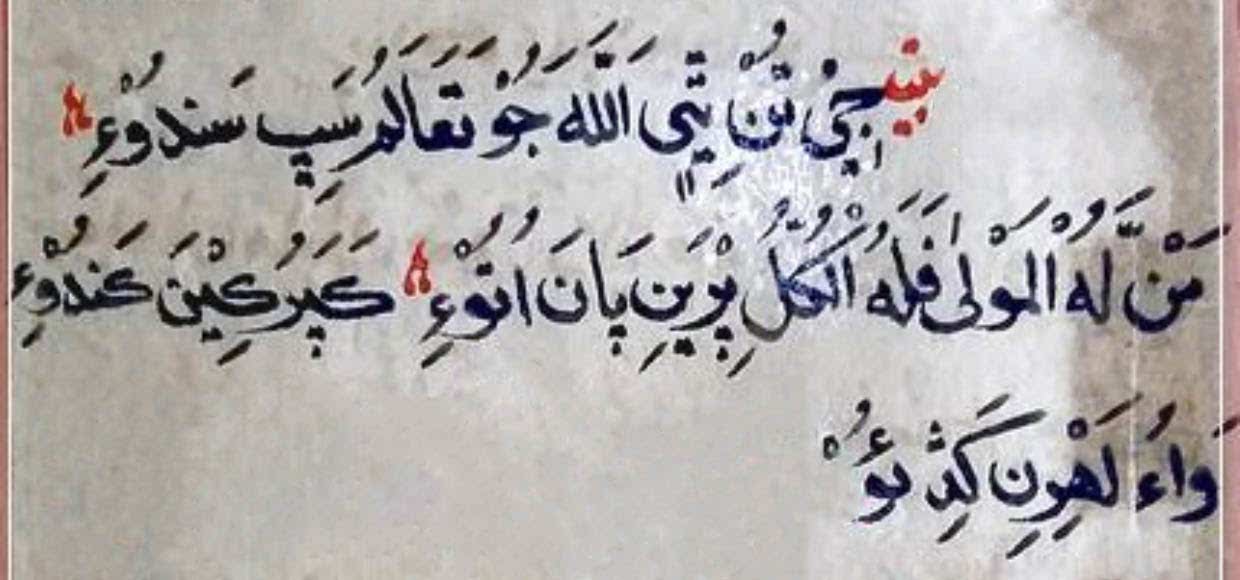 بيت جي تُنْ تِيي اللَّه جُوْ تَعَالَمُ سَپِ سَندوُءِ
مَنْ لَّهُ الْمَوْلىٰ فَلَهُ الْكُلُّ پُوْرِينِ پَانَ اتُوْءِ كَپَرُ كِيْنَ كَندوُءِ
وَاءُ لَهْرِنِ